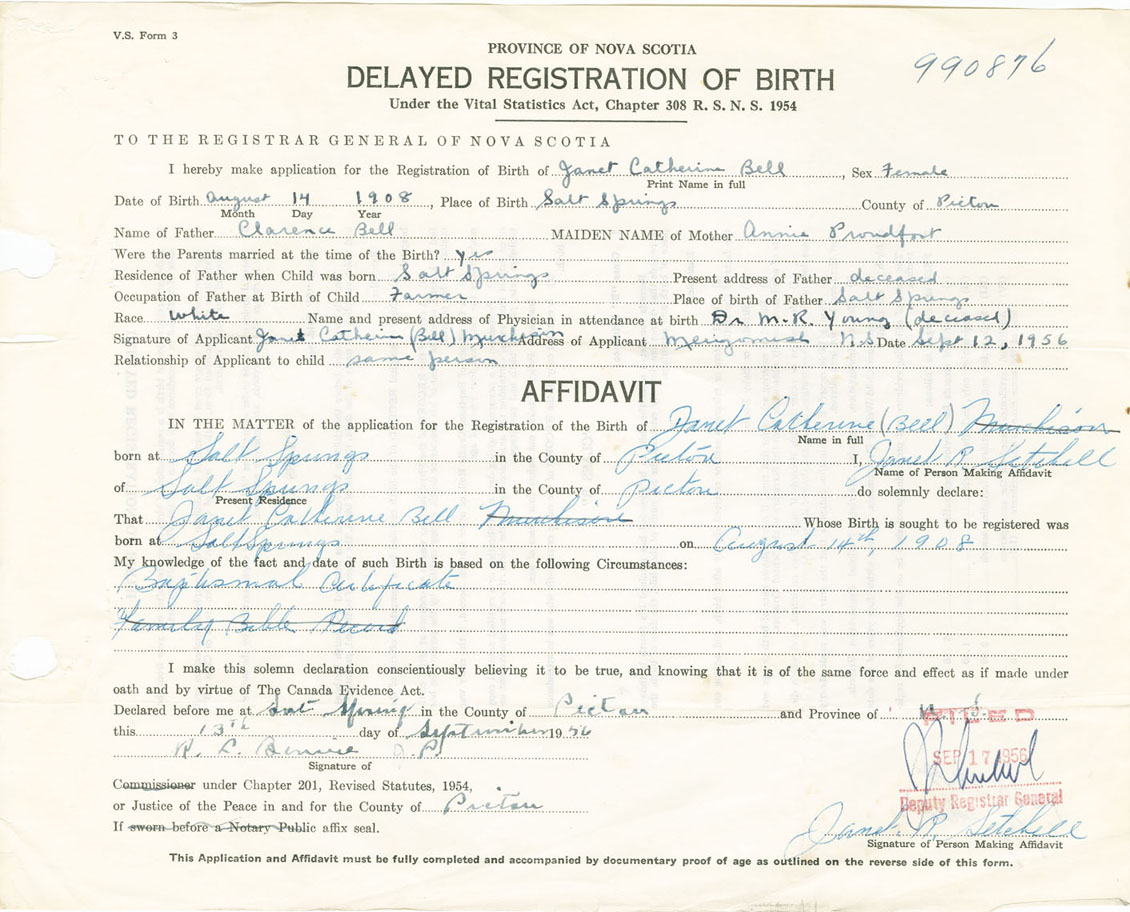 V.S. Form 3
PROVINCE OF NOVA SCOTIA
990876
DELAYED REGISTRATION OF BIRTH
Under the Vital Statistics Act, Chapter 308 R. S. N. S. 1954
TO THE REGISTRAR GENERAL OF NOVA SCOTIA
I hereby make application for the Registration of Birth of Janet Catherine Bell, Sex Female
Print Name in full
Date of Birth August 14 1908, Place of Birth Salt Springs County of Pictou
Month Day Year
Name of Father Clarence Bell MAIDEN NAME of Mother Annie Proudfoot
Were the Parents married at the time of the Birth? yes
Residence of Father when Child was born Salt Springs Present address of Father deceased
Occupation of Father at Birth of Child Farmer Place of birth of Father Salt Springs
Race White Name and present address of Physician in attendance at birth Dr M.R. Young (deceased)
Signature of Applicant Janet Catherine (Bell) Murchison Address of Applicant Merigomish N.S Date Sept 12, 1956
Relationship of Applicant to child same person
AFFIDAVIT
IN THE MATTER of the application for the Registration of the Birth of Janet Catherine (Bell) Murchison
Name in full
born at Salt Springs in the County of Pictou I, Janet R. Setchell
Name of Person Making Affidavit
of Salt Springs in the County of Pictou do solemnly declare:
Present Residence
That Janet Catherine Bell Murchison Whose Birth is sought to be registered was
born at Salt Springs on August 14th, 1908
My knowledge of the fact and date of such Birth is based on the following Circumstances:
Baptismal Certificate
Family Bible Record
I make this solemn declaration conscientiously believing it to be true, and knowing that it is of the same force and effect as if made under
oath and by virtue of The Canada Evidence Act.
Declared before me at Salt Springs in the County of Pictou and Province of N. S.
FILED
this 13th day of September 1956
SEP 17 1956
R. L. J.P.
Signature of
Commissioner under Chapter 201, Revised Statutes, 1954,
Deputy Registrar General
or Justice of the Peace in and for the County of Pictou
If sworn before a Notary Public affix seal.
Janet R. Setchell
Signature of Person Making Affidavit
This Application and Affidavit must be fully completed and accompanied by documentary proof of age as outlined on the reverse side of this form.